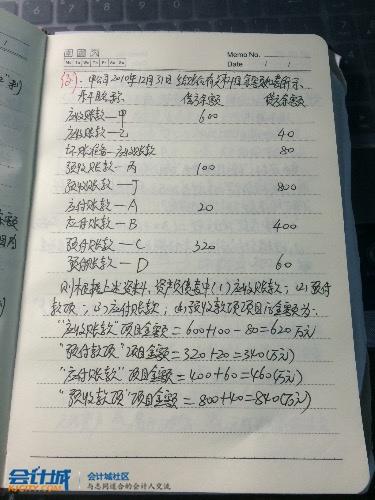 Memo No.
Mo Tu We Th Fr Sa Su
Date / /
甲公司2010年12月31日结账后有关科目余额如下所示
科目名称 借方余额 贷方余额
应收账款—甲 600
应收账款—乙 40
坏账准备—应收账款 80
预收账款—丙 100
预收账款—丁 800
应付账款—A 20
应付账款—B 400
预付账款—C 320
预付账款—D 60
则根据上述资料,资产负债表中(1)应收账款;(2)预付
款项;(3)应付账款;(4)预收款项项目的金额为:
"应收账款"项目金额=600+100-80=620(万元)
"预付款项"项目金额=320+20=340(万元)
"应付账款"项目金额=400+60=460(万元)
"预收款项"项目金额=800+40=840(万元)
会计城
KJCITY.COM
会计城社区
与志同道合的会计人交流